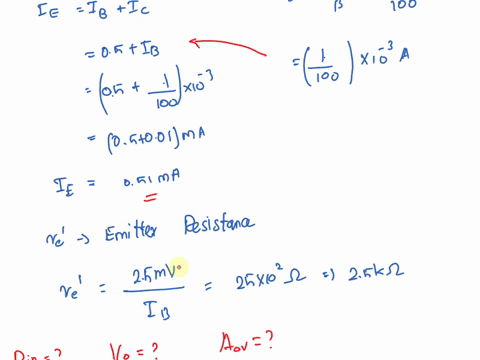 I_E = I_B + I_C
β 100
= 0.5 + I_B
= (1/100) × 10^-3 A
= (0.5 + 1/100) × 10^-3
= (0.5+0.01) mA
I_E = 0.51 mA
r_e' → Emitter Resistance
r_e' = 25mV / I_B = 25×10^2 Ω ⇒ 2.5kΩ
= ? V_o = ? A_ov = ?